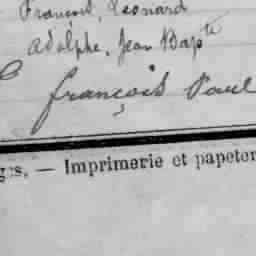 François, Léonard
Adolphe, Jean Bapte
françois Paul
ges. — Imprimerie et papeter